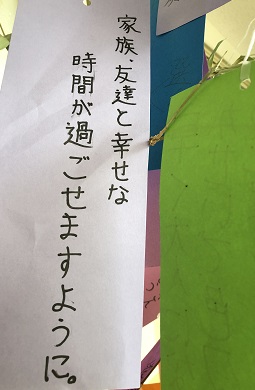 家族、友達と幸せな
時間が過ごせますように。